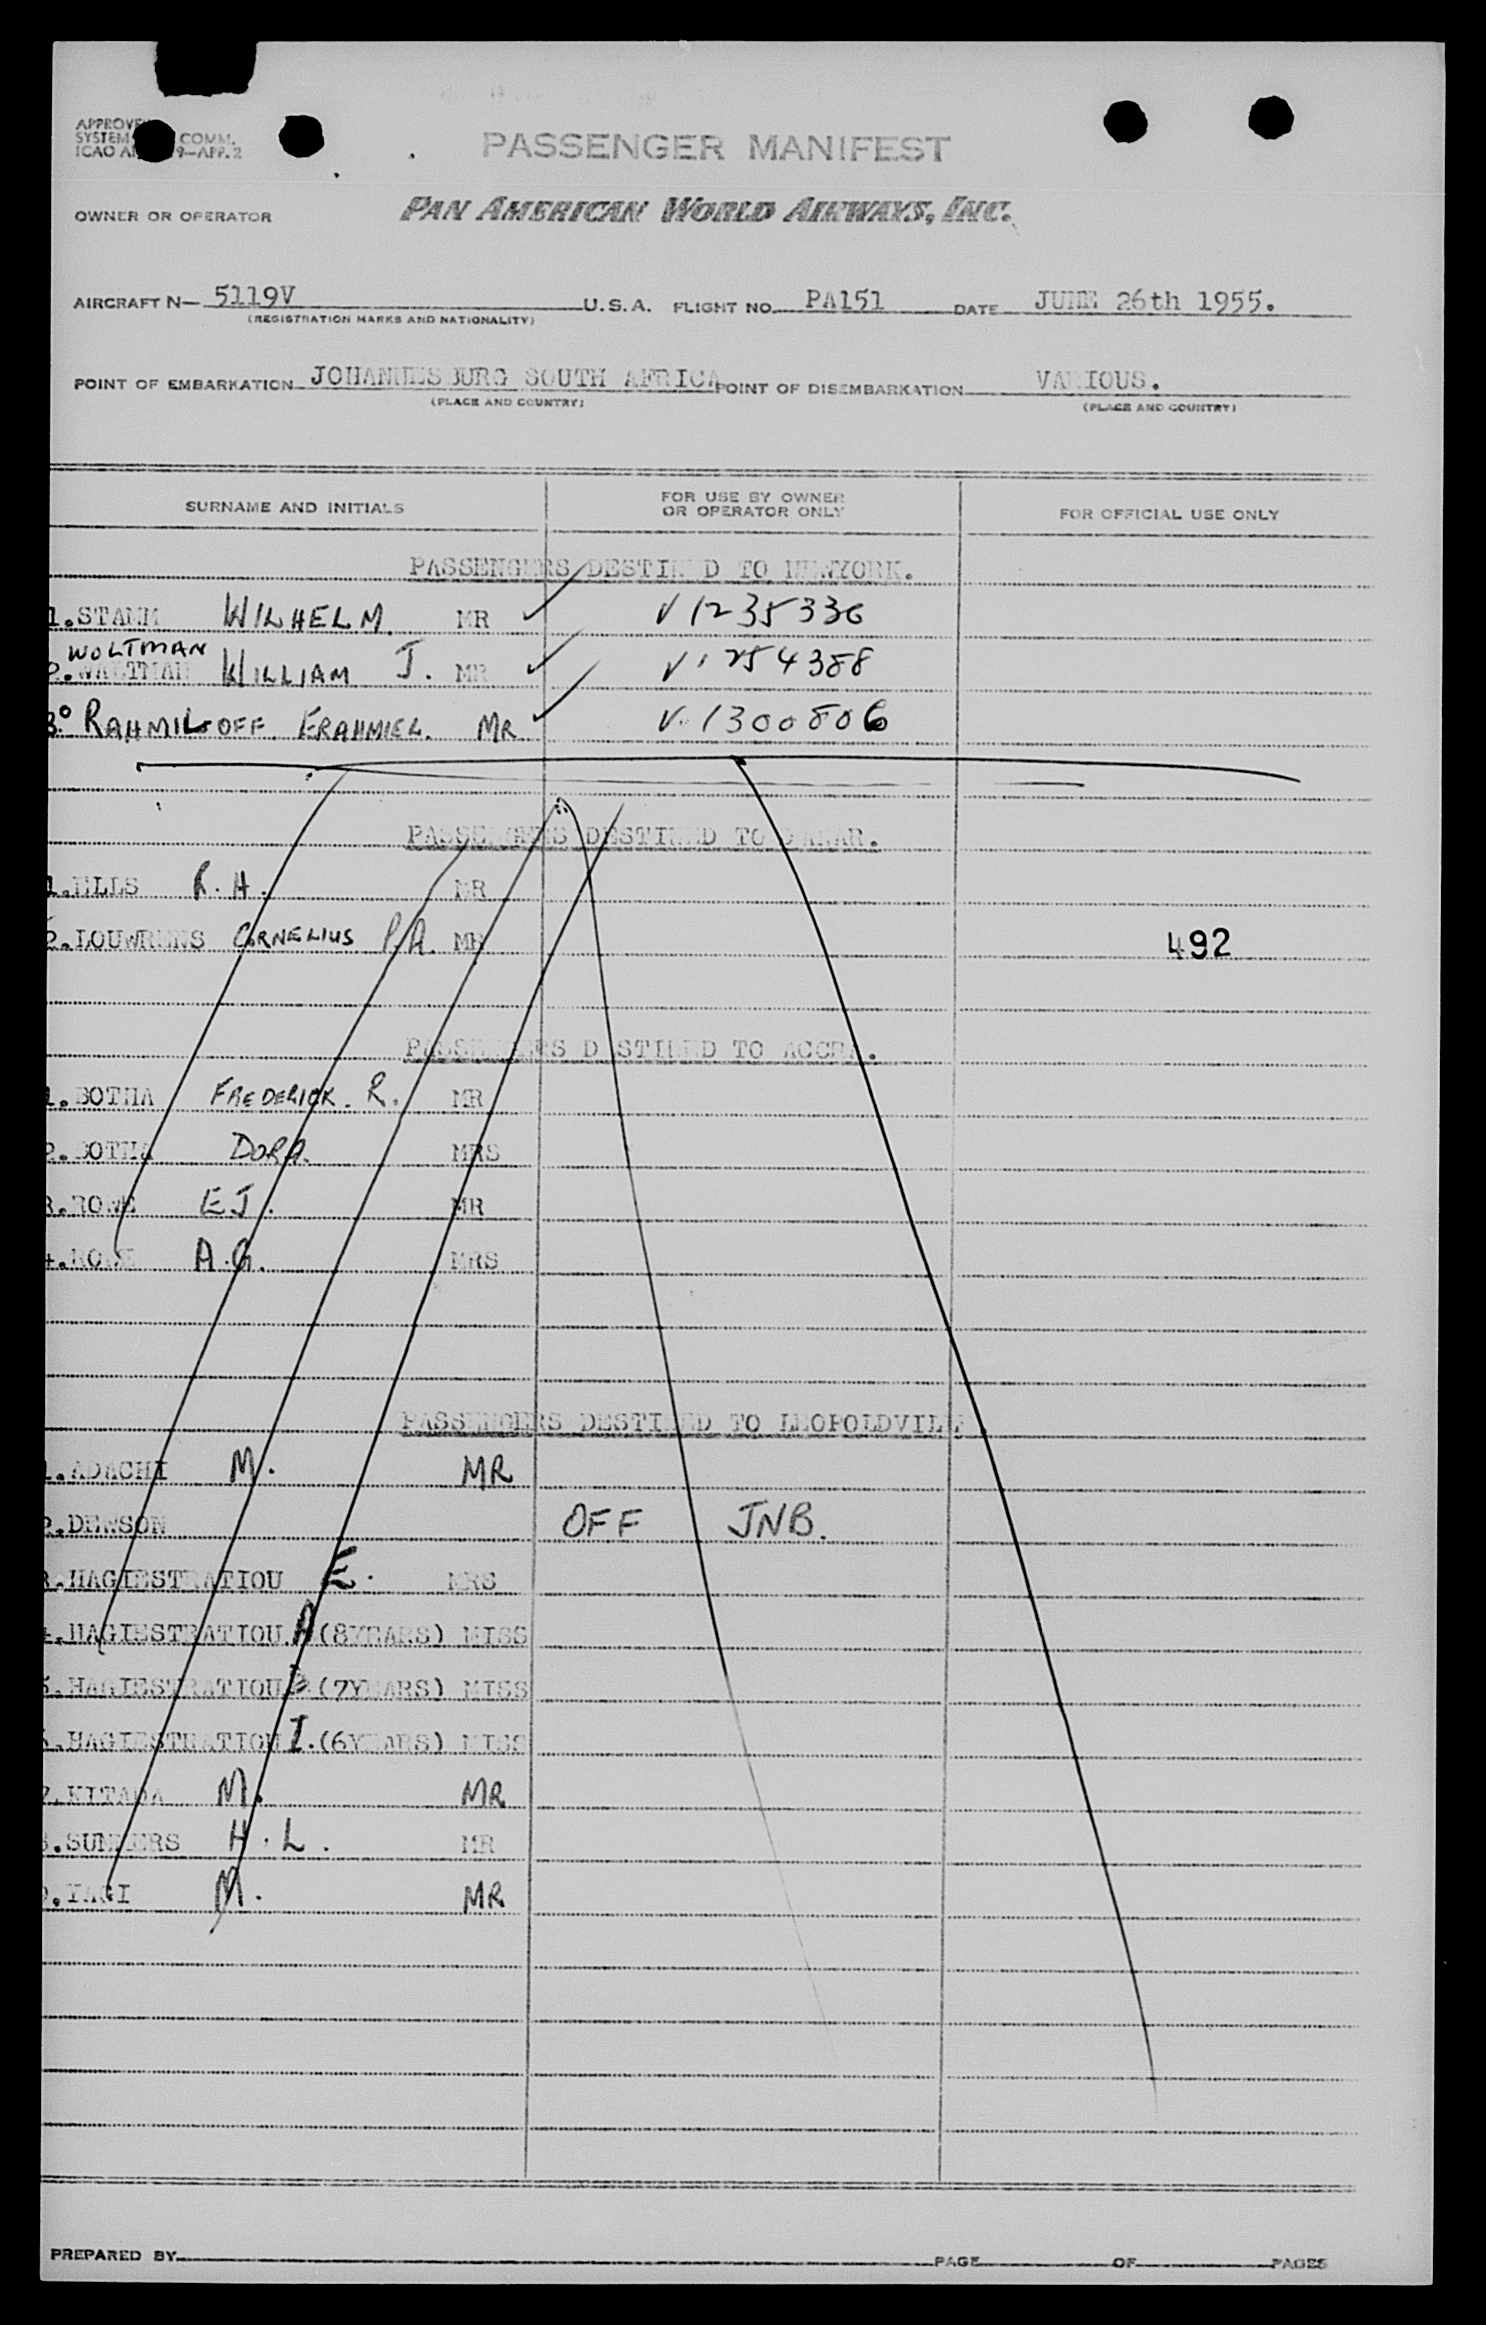 PASSENGER MANIFEST
OWNER OR OPERATOR PAN AMERICAN WORLD AIRWAYS, INC.
AIRCRAFT N— 5119V U.S.A. FLIGHT NO. PA151 DATE JUNE 26th 1955.
(REGISTRATION MARKS AND NATIONALITY)
POINT OF EMBARKATION JOHANNESBURG SOUTH AFRICA POINT OF DISEMBARKATION VARIOUS.
(PLACE AND COUNTRY) (PLACE AND COUNTRY)
SURNAME AND INITIALS FOR USE BY OWNER OR OPERATOR ONLY FOR OFFICIAL USE ONLY
PASSENGERS DESTINED TO NEWYORK.
1.STAMM WILHELM. MR ✓ V 1235336
WOLTMAN
2.WALTMAN WILLIAM J. MR ✓ V. 1254388
3. RAHMILOFF ERAHMIEL. MR ✓ V. 1300806
PASSENGERS DESTINED TO DAKAR.
1.ELLS R.H. MR
2.LOUWRENS CORNELIUS P.A. MR 492
PASSENGERS DESTINED TO ACCRA.
1.BOTHA FREDERICK. R. MR
2.BOTHA DORA. MRS
3.ROWE E J. MR
4.ROWE A.G. MRS
PASSENGERS DESTINED TO LEOPOLDVILLE
1.ADACHI M. MR
2.DEWSON OFF JNB.
3.HAGIESTRATIOU E. MRS
4.HAGIESTRATIOU A (8YEARS) MISS
5.HAGIESTRATIOU (7YEARS) MISS
6.HAGIESTRATIOU I. (6YEARS) MISS
7.KITADA M. MR
8.SUNDERS H.L. MR
9.YAGI M. MR
PREPARED BY PAGE OF PAGES